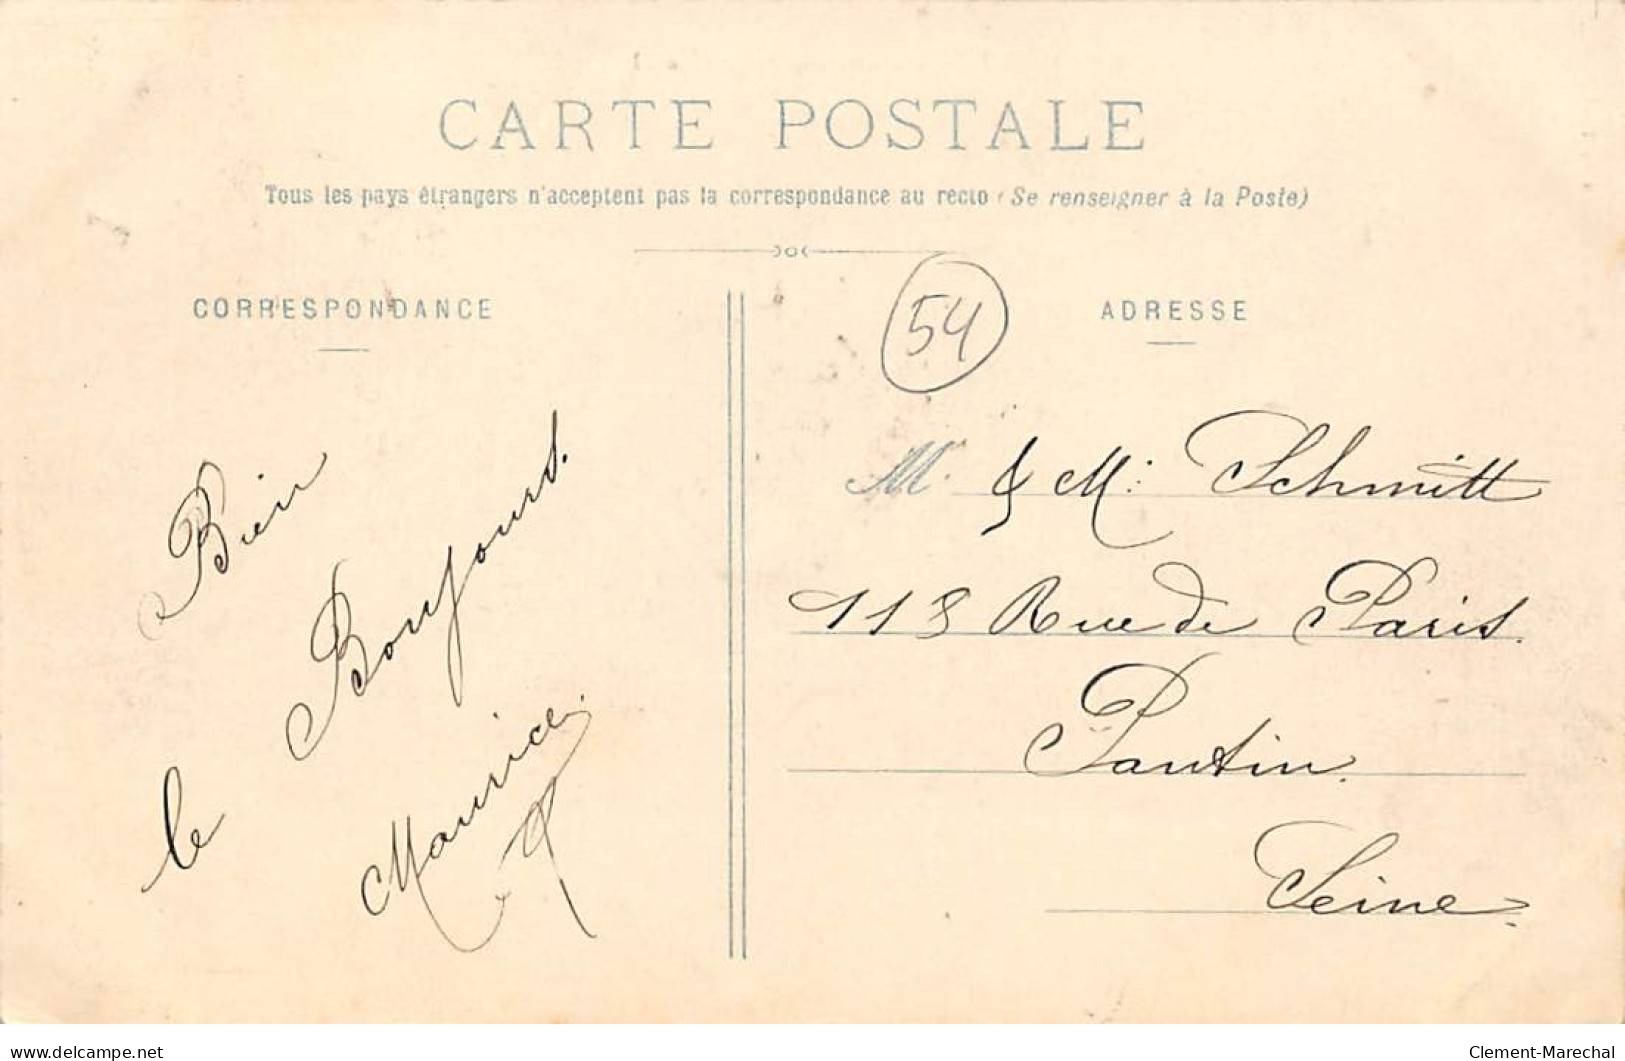 CARTE POSTALE
Tous les pays étrangers n'acceptent pas la correspondance au recto (Se renseigner à la Poste)
CORRESPONDANCE
Bien
le Bonjours.
Maurice
54
ADRESSE
M. & M. Schmitt
113 Rue de Paris.
Pantin.
Seine
delcampe.net
Clement-Marechal